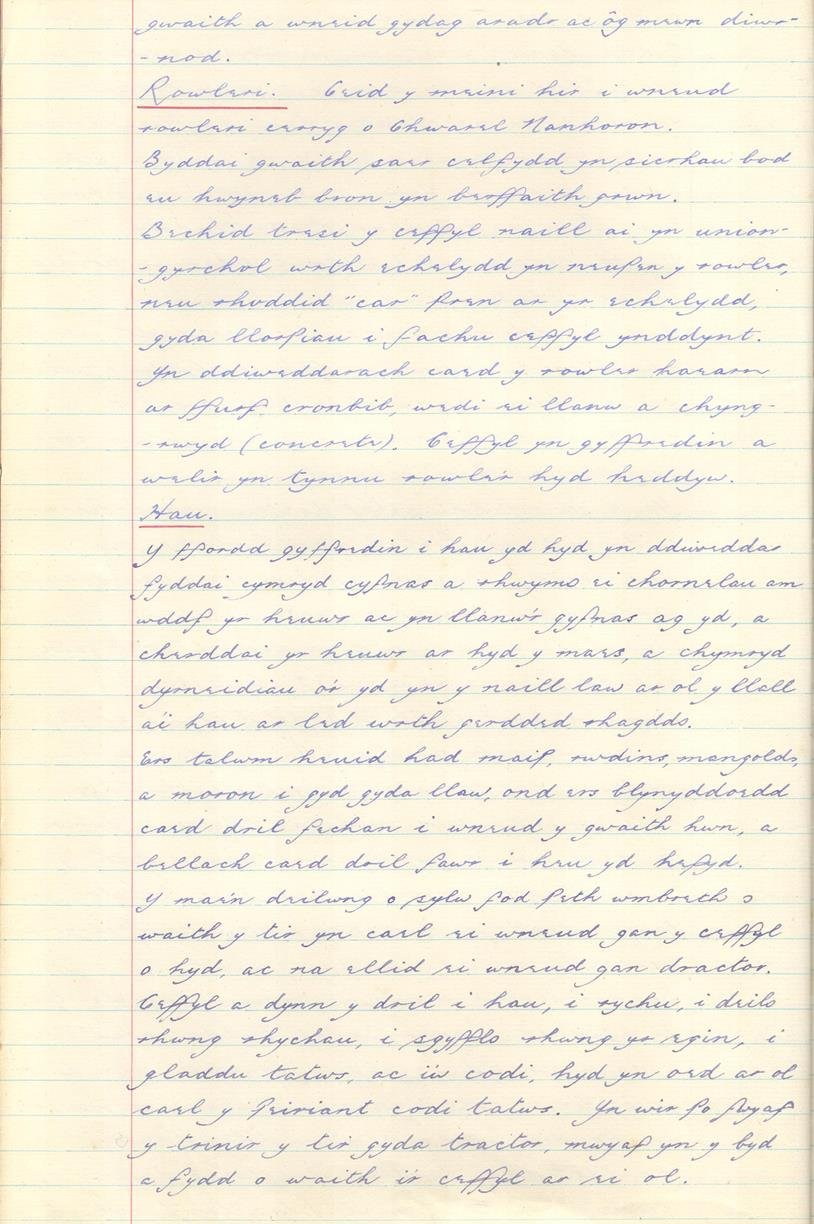 gwaith a wneid gydag aradr ac ôg mewn diwr-
-nod.
Rowleri. Ceid y meini hir i wneud
rowleri cerryg o Chwarel Nanhoron.
Byddai gwaith saer celfydd yn sicrhau bod
eu hwyneb bron yn berffaith grwn.
Bechid tresi y ceffyl naill ai yn union-
-gyrchol wrth echelydd yn neupen y rowler,
neu rhoddid "car" pren ar yr echelydd,
gyda llorpiau i fachu ceffyl ynddynt.
Yn ddiweddarach caed y rowler haearn
ar ffurf cronbib, wedi ei llanw a chyng-
-rwyd (concrete). Ceffyl yn gyffredin a
welir yn tynnu rowler hyd heddyw.
Hau.
Y ffordd gyffredin i hau yd hyd yn ddiweddar
fyddai cymryd cyfnas a rhwymo ei chornelau am
wddf yr heuwr ac yn llanw'r gyfnas ag yd, a
cherddai yr heuwr ar hyd y maes, a chymryd
dyrneidiau o'r yd yn y naill law ar ol y llall
a'i hau ar led wrth gerdded rhagddo.
Ers talwm heuid had maip, rwdins, mangolds,
a moron i gyd gyda llaw, ond ers blynyddoedd
caed dril fechan i wneud y gwaith hwn, a
bellach caed dril fawr i heu yd hefyd.
Y mae'n deilwng o sylw fod peth wmbreth o
waith y tir yn cael ei wneud gan y ceffyl
o hyd, ac na ellid ei wneud gan dractor.
Ceffyl a dynn y dril i hau, i rychu, i deilo
rhwng rhychau, i sgyfflo rhwng yr egin, i
gladdu tatws, ac i'w codi, hyd yn oed ar ol
cael y peiriant codi tatws. Yn wir po fwyaf
y trinir y tir gyda tractor, mwyaf yn y byd
a fydd o waith i'r ceffyl ar ei ol.